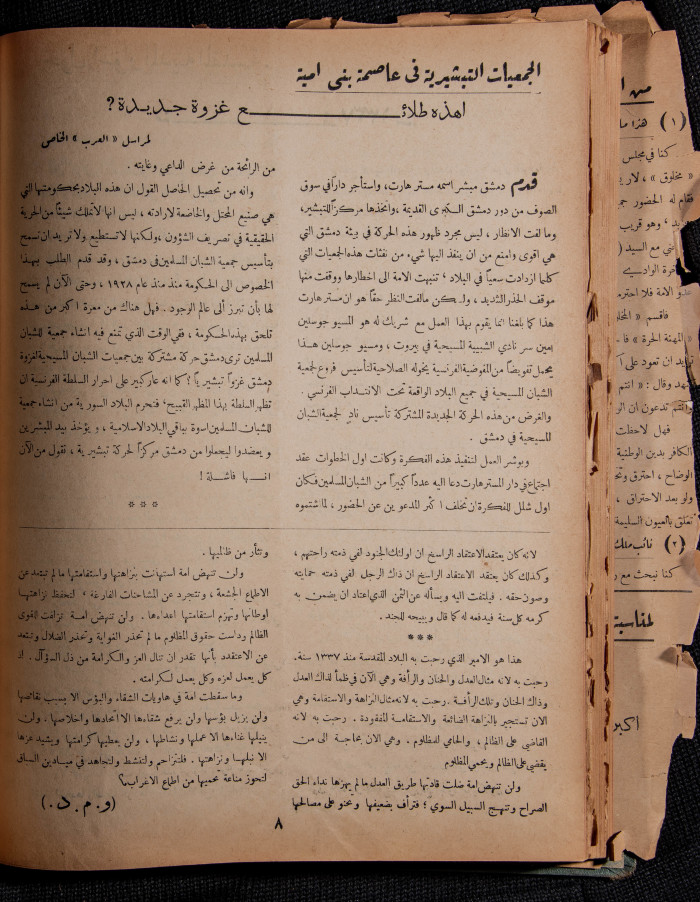 الجمعيات التبشيرية فى عاصمة بنى امية
اهذه طلائع غزوة جديدة؟
لمراسل « العرب » الخاص
قدم دمشق مبشر اسمه مستر هارت، واستأجر داراً في سوق
الصوف من دور دمشق الكبرى القديمة ،واتخذها مركزاً للتبشير،
وما لفت الانظار ، ليس مجرد ظهور هذه الحركة في بيئة دمشق التي
هي اقوى وامنع من ان ينفذ اليها شيء من نفثات هذه الجمعيات التي
كلما ازدادت سعياً في البلاد ، تنبهت الامة الى اخطارها ووقفت منها
موقف الحذر الشديد ، ولكن مالفت النظر حقاً هو ان مستر هارت
هذا كما بلغنا انما يقوم بهذا العمل مع شريك له هو المسيو جوسلين
بعين سر نادي الشبيبة المسيحية في بيروت ، ومسيو جوسلين هذا
يحمل تفويضاً من المفوضية الفرنسية يخوله الصلاحية لتأسيس فروع لجمعية
الشبان المسيحية في جميع البلاد الواقعة تحت الانتداب الفرنسي .
والغرض من هذه الحركة الجديدة المشتركة تأسيس نادٍ لجمعية الشبان
المسيحية في دمشق .
وبوشر العمل لتنفيذ هذه الفكرة وكانت اول الخطوات عقد
اجتماع في دار المستر هارت دعا اليه عدداً كبيراً من الشبان المسلمين فكان
اول شلل للفكرة ان تخلف اكثر المدعوين عن الحضور ، لما اشتموه
من الرائحة من غرض الداعي وغايته .
وانه من تحصيل الحاصل القول ان هذه البلاد بحكومتها التي
هي صنيع المحتل والخاضعة لارادته ، ليس انها لاتملك شيئاً من الحرية
الحقيقية في تصريف الشؤون ،ولكنها لاتستطيع ولاتريد ان تسمح
بتأسيس جمعية الشبان المسلمين في دمشق ، وقد قدم الطلب بهذا
الخصوص الى الحكومة منذ منذ عام ١٩٢٨ ، وحتى الآن لم يسمح
لها بأن تبرز إلى عالم الوجود . فهل هناك من معرة اكبر من هذه
تلحق بهذه الحكومة ، ففي الوقت الذي تمنع فيه انشاء جمعية للشبان
المسلمين ترى دمشق حركة مشتركة بين جمعيات الشبان المسيحية لغزوة
دمشق غزواً تبشيرياً ؟ كما انه عار كبير على احرار السلطة الفرنسية ان
تظهر السلطة بهذا المظهر القبيح، فتحرم البلاد السورية من انشاء جمعية
للشبان المسلمين اسوة بباقي البلاد الاسلامية ، و يؤخذ بيد المبشرين
و يعضدوا ليجعلوا من دمشق مركزاً لحركة تبشيرية ، نقول من الآن
انها فاشلة !
* * *
لانه كان يعتقد الاعتقاد الراسخ ان اولئك الجنود لفي ذمته راحتهم ،
وكذلك كان يعتقد الاعتقاد الراسخ ان ذاك الرجل لفي ذمته حمايته
وصون حقه . فيلتفت اليه ويسأله عن الثمن الذي اعتاد ان يضمن به
كرمه كل سنة فيدفعه له كما قال ويبيحه للجند .
***
هذا هو الامير الذي رحبت به البلاد المقدسة منذ ١٣٣٧ سنة.
رحبت به لانه مثال العدل والحنان والرأفة وهي الآن في ظمأ لذاك العدل
وذاك الحنان وتلك الرأفة . رحبت به لانه مثال النزاهة والاستقامة وهي
الآن تستجير بالنزاهة الضائعة والاستقامة المفقودة . رحبت به لانه
القاضي على الظالم ، والحامي للمظلوم . وهي الآن بحاجة الى من
يقضي على الظالم ويحمي المظلوم
ولن تنهض امة ضلت قادتها طريق العدل مالم يهزها نداء الحق
الصراح وتنهج السبيل السوي ؛ فترأف بضعيفها وتحنو على مصالحها
وتثأر من ظالميها .
ولن تنهض امة استهانت بنزاهتها واستقامتها مالم تبتعد عن
الاطماع الجشعة ، وتتجرد عن المشاحنات الفارغة ، لتحفظ نزاهتها
اوطانها وتهزم استقامتها اعداءها . ولن تنهض امة تزلفت القوى
الظالم وداست حقوق المظلوم ما لم تحذر الغواية وتحذر الضلال وتبتعد
عن الاعتقاد بأنها تقدر ان تنال العز والكرامة من ذل السؤآل .
كل يعمل لعزه وكل يعمل لكرامته .
وما سقطت امة في هاويات الشقاء والبؤس الا بسبب نقائصها
ولن يزيل بؤسها ولن يرفع شقاءها الا اتحادها واخلاصها . ولن
ينيلها غناءها الا عملها ونشاطها ، ولن يعطيها كرامتها ويشيد عزها
الا نبلها ونزاهتها . فلنتزاحم ولننشط ولنجاهد في ميادين السباق
لنحوز مناعة تحميها من اطماع الاغراب؟
(و . م . د .)
٨
من ا
(١) هذا ما
كنا في مجلس
« مخلوق » ، لا ر
فقام له الحضور
وهو قريب
(٢) نائب ملك
كنا نبحث مع
لمناسبة
اكبر